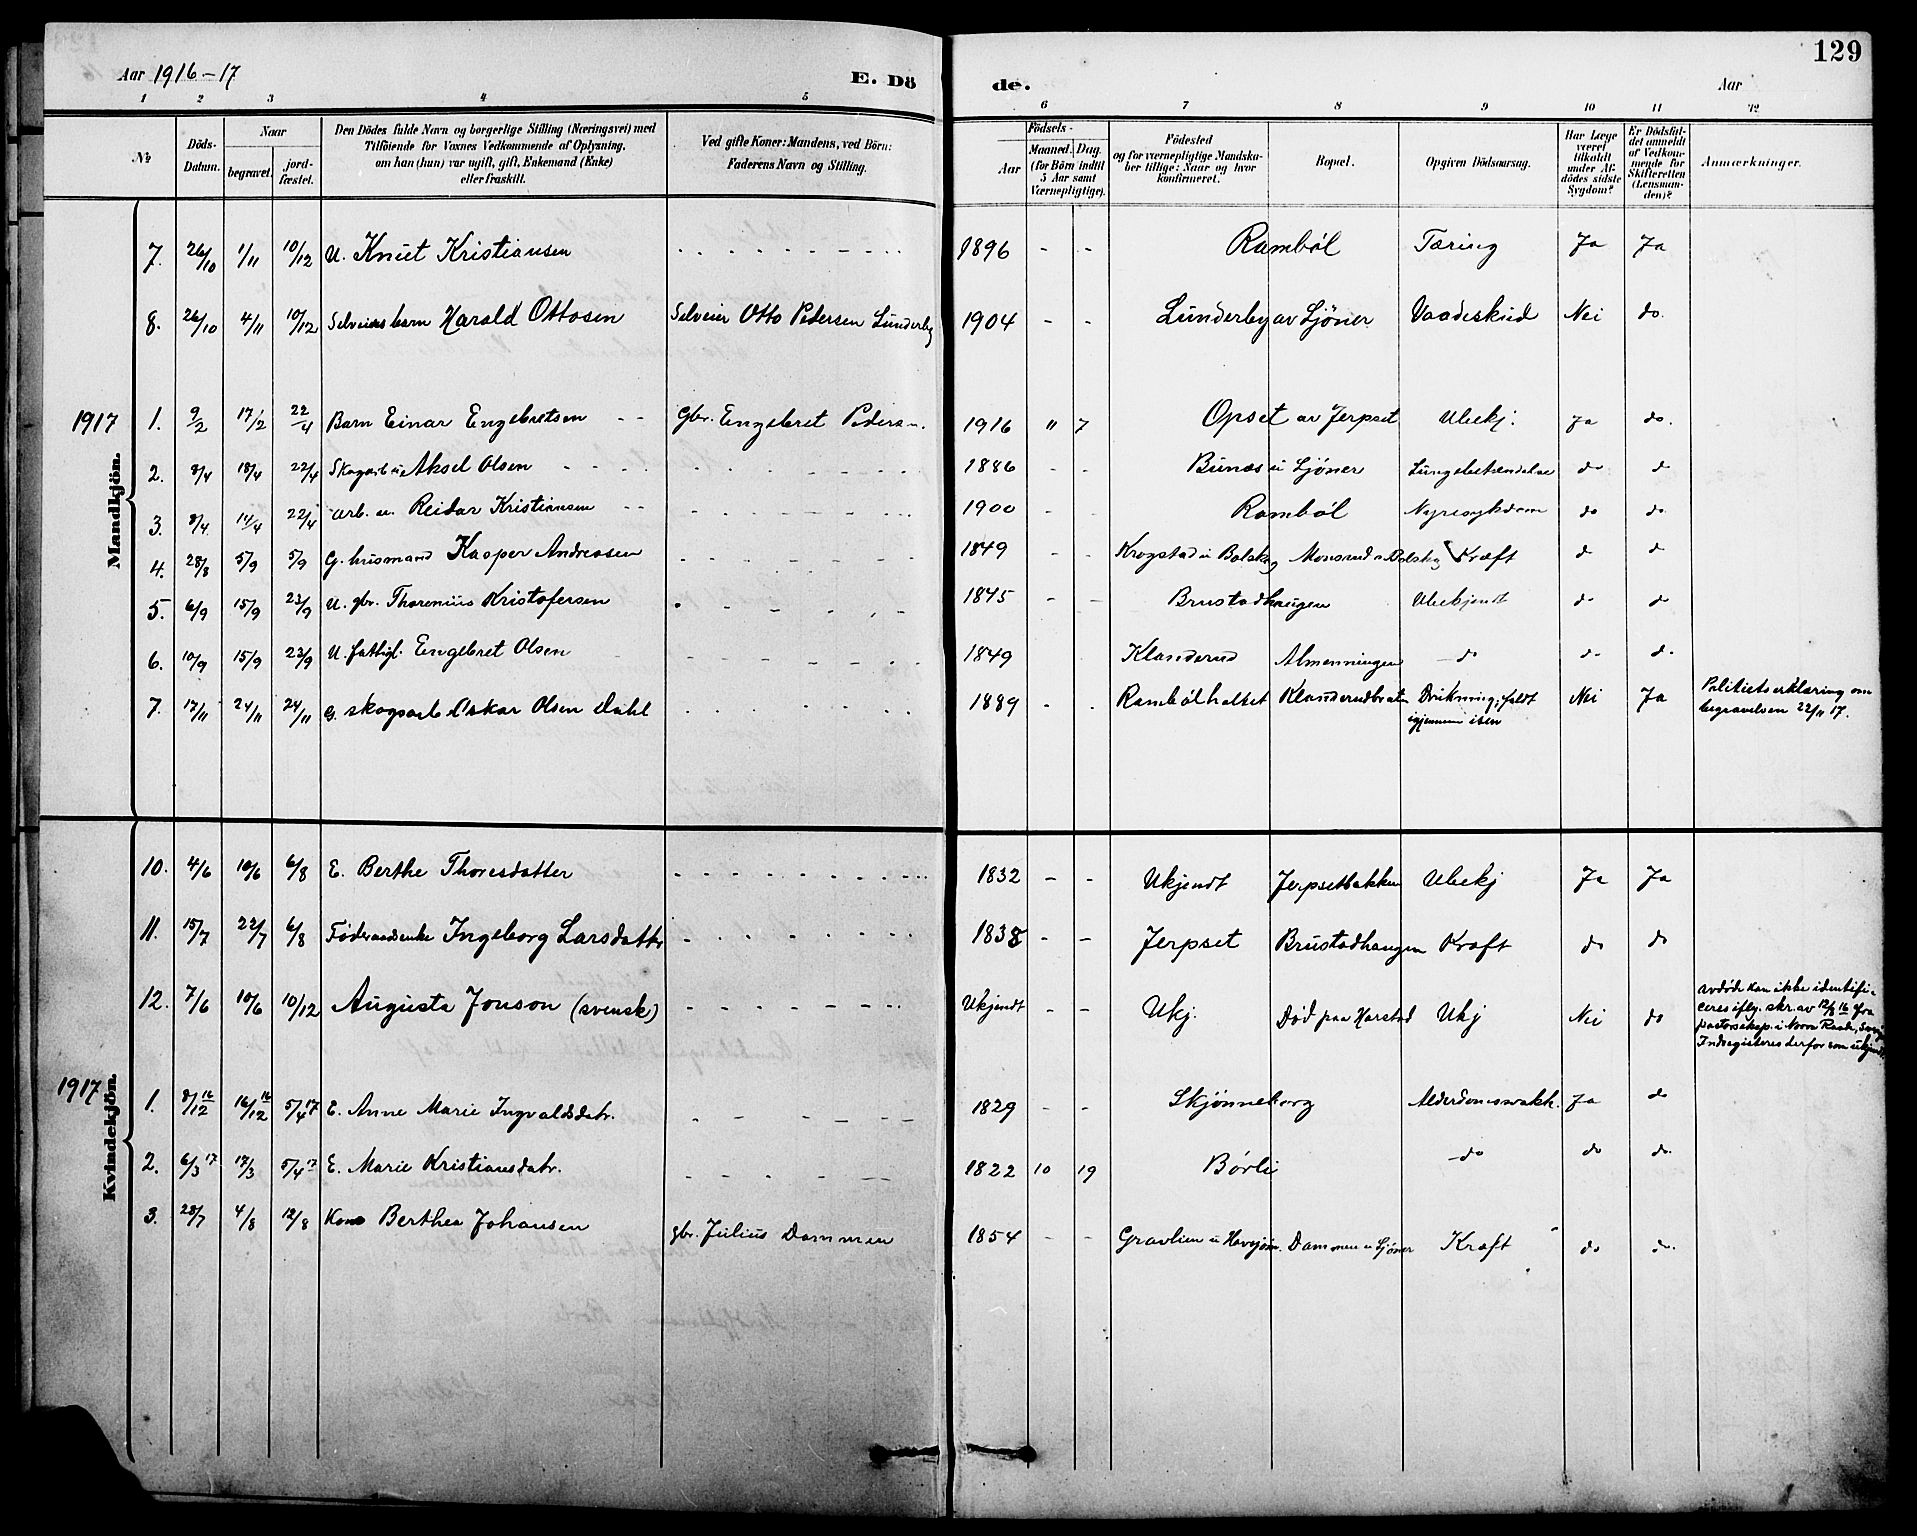 129
Aar 1916-17 E. Dö de. Aar
1 2 3 4 5 6 7 8 9 10 11 12
No Döds-Datum. Naar begravet. jord-fæstet. Den Dödes fulde Navn og borgerlige Stilling (Næringsvei) med Tilföiende for Voxnes Vedkommende af Oplysning, om han (hun) var ugift, gift, Enkemand (Enke) eller fraskilt. Ved gifte Koner: Mandens, ved Börn: Faderens Navn og Stilling. Födsels- Aar Maaned. Dag. (for Börn indtil 5 Aar samt Værnepligtige). Födested og for værnepligtige Mandskaber tillige: Naar og hvor konfirmeret. Bopæl. Opgiven Dödsaarsag. Har Læge været tilkaldt under Afdödes sidste Sygdom? Er Dödsfaldet anmeldt af Vedkommende for Skifteretten (Lensmanden)? Anmærkninger.
Mandkjön.
7. 26/10 1/11 10/12 U. Knut Kristiansen 1896 - - Rambøl Tæring Ja Ja
8. 26/10 4/11 10/12 Selveiersbarn Harald Ottosen Selveier Otto Pedersen Lunderby 1904 - - Lunderby av Sjöner Vaadeskud Nei do.
1917 1. 9/2 17/2 22/4 Barn Einar Engebretsen - - Gbr. Engebret Peders-n. 1916 " 7 Opset av Jerpset Ubekj. Ja do.
2. 8/4 18/4 22/4 Skogarb u Aksel Olsen 1886 - - Bunæs u Sjöner Lungebetændelse do do
3. 8/4 14/4 22/4 Arb. u. Reidar Kristiansen 1900 - - Rambøl Nyresykdom do do
4. 28/8 5/9 5/9 G. husmand Kasper Andreasen 1849 - - Krogstad u Bolskog Monsrud u Bolskog Kræft do do
5. 6/9 15/9 23/9 U. gbr. Thorenius Kristofersen 1845 - - Brustadhaugen Ubekjendt do do
6. 10/9 15/9 23/9 U. fattigl. Engebret Olsen 1849 Klanderud Almenningen - do do do
7. 17/11 24/11 24/11 G. skogsarb. Oskar Olsen Dahl 1889 - - Rambølholtet Klanderudbraten Drukning; faldt igjennem isen Nei Ja Politiets erklæring om begravelsen 22/11 17.
Kvindekjön.
10. 4/6 10/6 6/8 E. Berthe Thoresdatter 1832 - - Ukjendt Jerpsetbakken Ubekj Ja Ja
11. 15/7 22/7 6/8 Föderaadsenke Ingeborg Larsdatter 1838 - - Jerpset Brustadhaugen Kræft do do
12. 7/6 10/6 10/12 Augusta Jonson (svensk) Ukjendt - - Ukj. Död paa Harstad Ukj Nei do avdöde kan ikke identificeres iflg. skr. av 12/8 16 fra pastorseksp. i Norra Raada, Sverig. Indregisteres derfor som ukjendt.
1917 1. 8/12 16 16/12 16 5/4 17 E. Anne Marie Ingvaldsdatr. 1829 - - Skjønneborg Alderdomssvakh. Ja do
2. 6/3 17 17/3 5/4 17 E. Marie Kristiansdatr. 1822 10 19 Börli - do do do.
3. 28/7 4/8 12/8 Kone Berthea Johansen gbr. Julius Dammen 1854 - - Gravlien u Havsjön. Dammen u Sjöner Kræft do do.